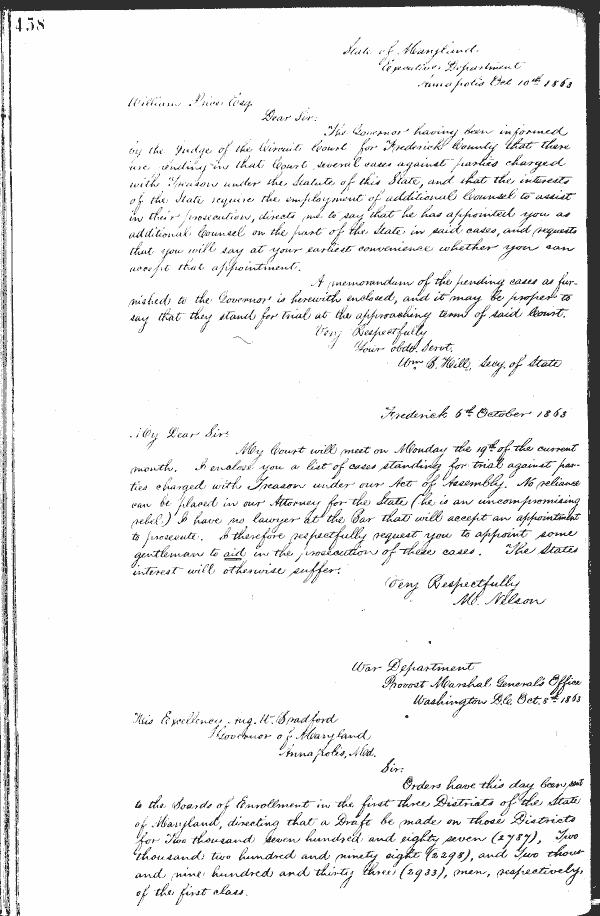 458
State of Maryland.
Executive Department
Annapolis Oct 10th 1863
William Price Esq.
Dear Sir:
The Governor having been informed
by the Judge of the Circuit Court for Frederick County that there
are pending in that Court several cases against parties charged
with Treason under the Statute of this State, and that the interests
of the State require the employment of additional Counsel to assist
in their prosecution, directs me to say that he has appointed you as
additional Counsel on the part of the State in said cases, and requests
that you will say at your earliest convenience whether you can
accept that appointment.
A memorandum of the pending cases as fur-
nished to the Governor is herewith enclosed, and it may be proper to
say that they stand for trial at the approaching term of said Court.
Very Respectfully
Your obdt. Servt.
Wm B. Hill, Secy. of State
Frederick 6th October 1863
My Dear Sir:
My Court will meet on Monday the 19th of the current
month. I enclose you a list of cases standing for trial against par-
ties charged with Treason under our Act of Assembly. No reliance
can be placed in our Attorney for the State (he is an uncompromising
rebel) I have no lawyer at the Bar that will accept an appointment
to prosecute. I therefore respectfully request you to appoint some
gentleman to aid in the prosecution of these cases. The States
interest will otherwise suffer.
Very Respectfully
M. Nelson
War Department
Provost Marshal General's Office
Washington D.C. Oct. 8th 1863
His Excellency, Aug. W. Bradford
Governor of Maryland
Annapolis, Md.
Sir:
Orders have this day been, sent
to the Boards of Enrollment in the first three Districts of the State
of Maryland, directing that a Draft be made on those Districts
for Two thousand seven hundred and eighty seven (2787), Two
thousand two hundred and ninety eight (2298), and Two thous-
and nine hundred and thirty three (2933), men, respectively,
of the first class.